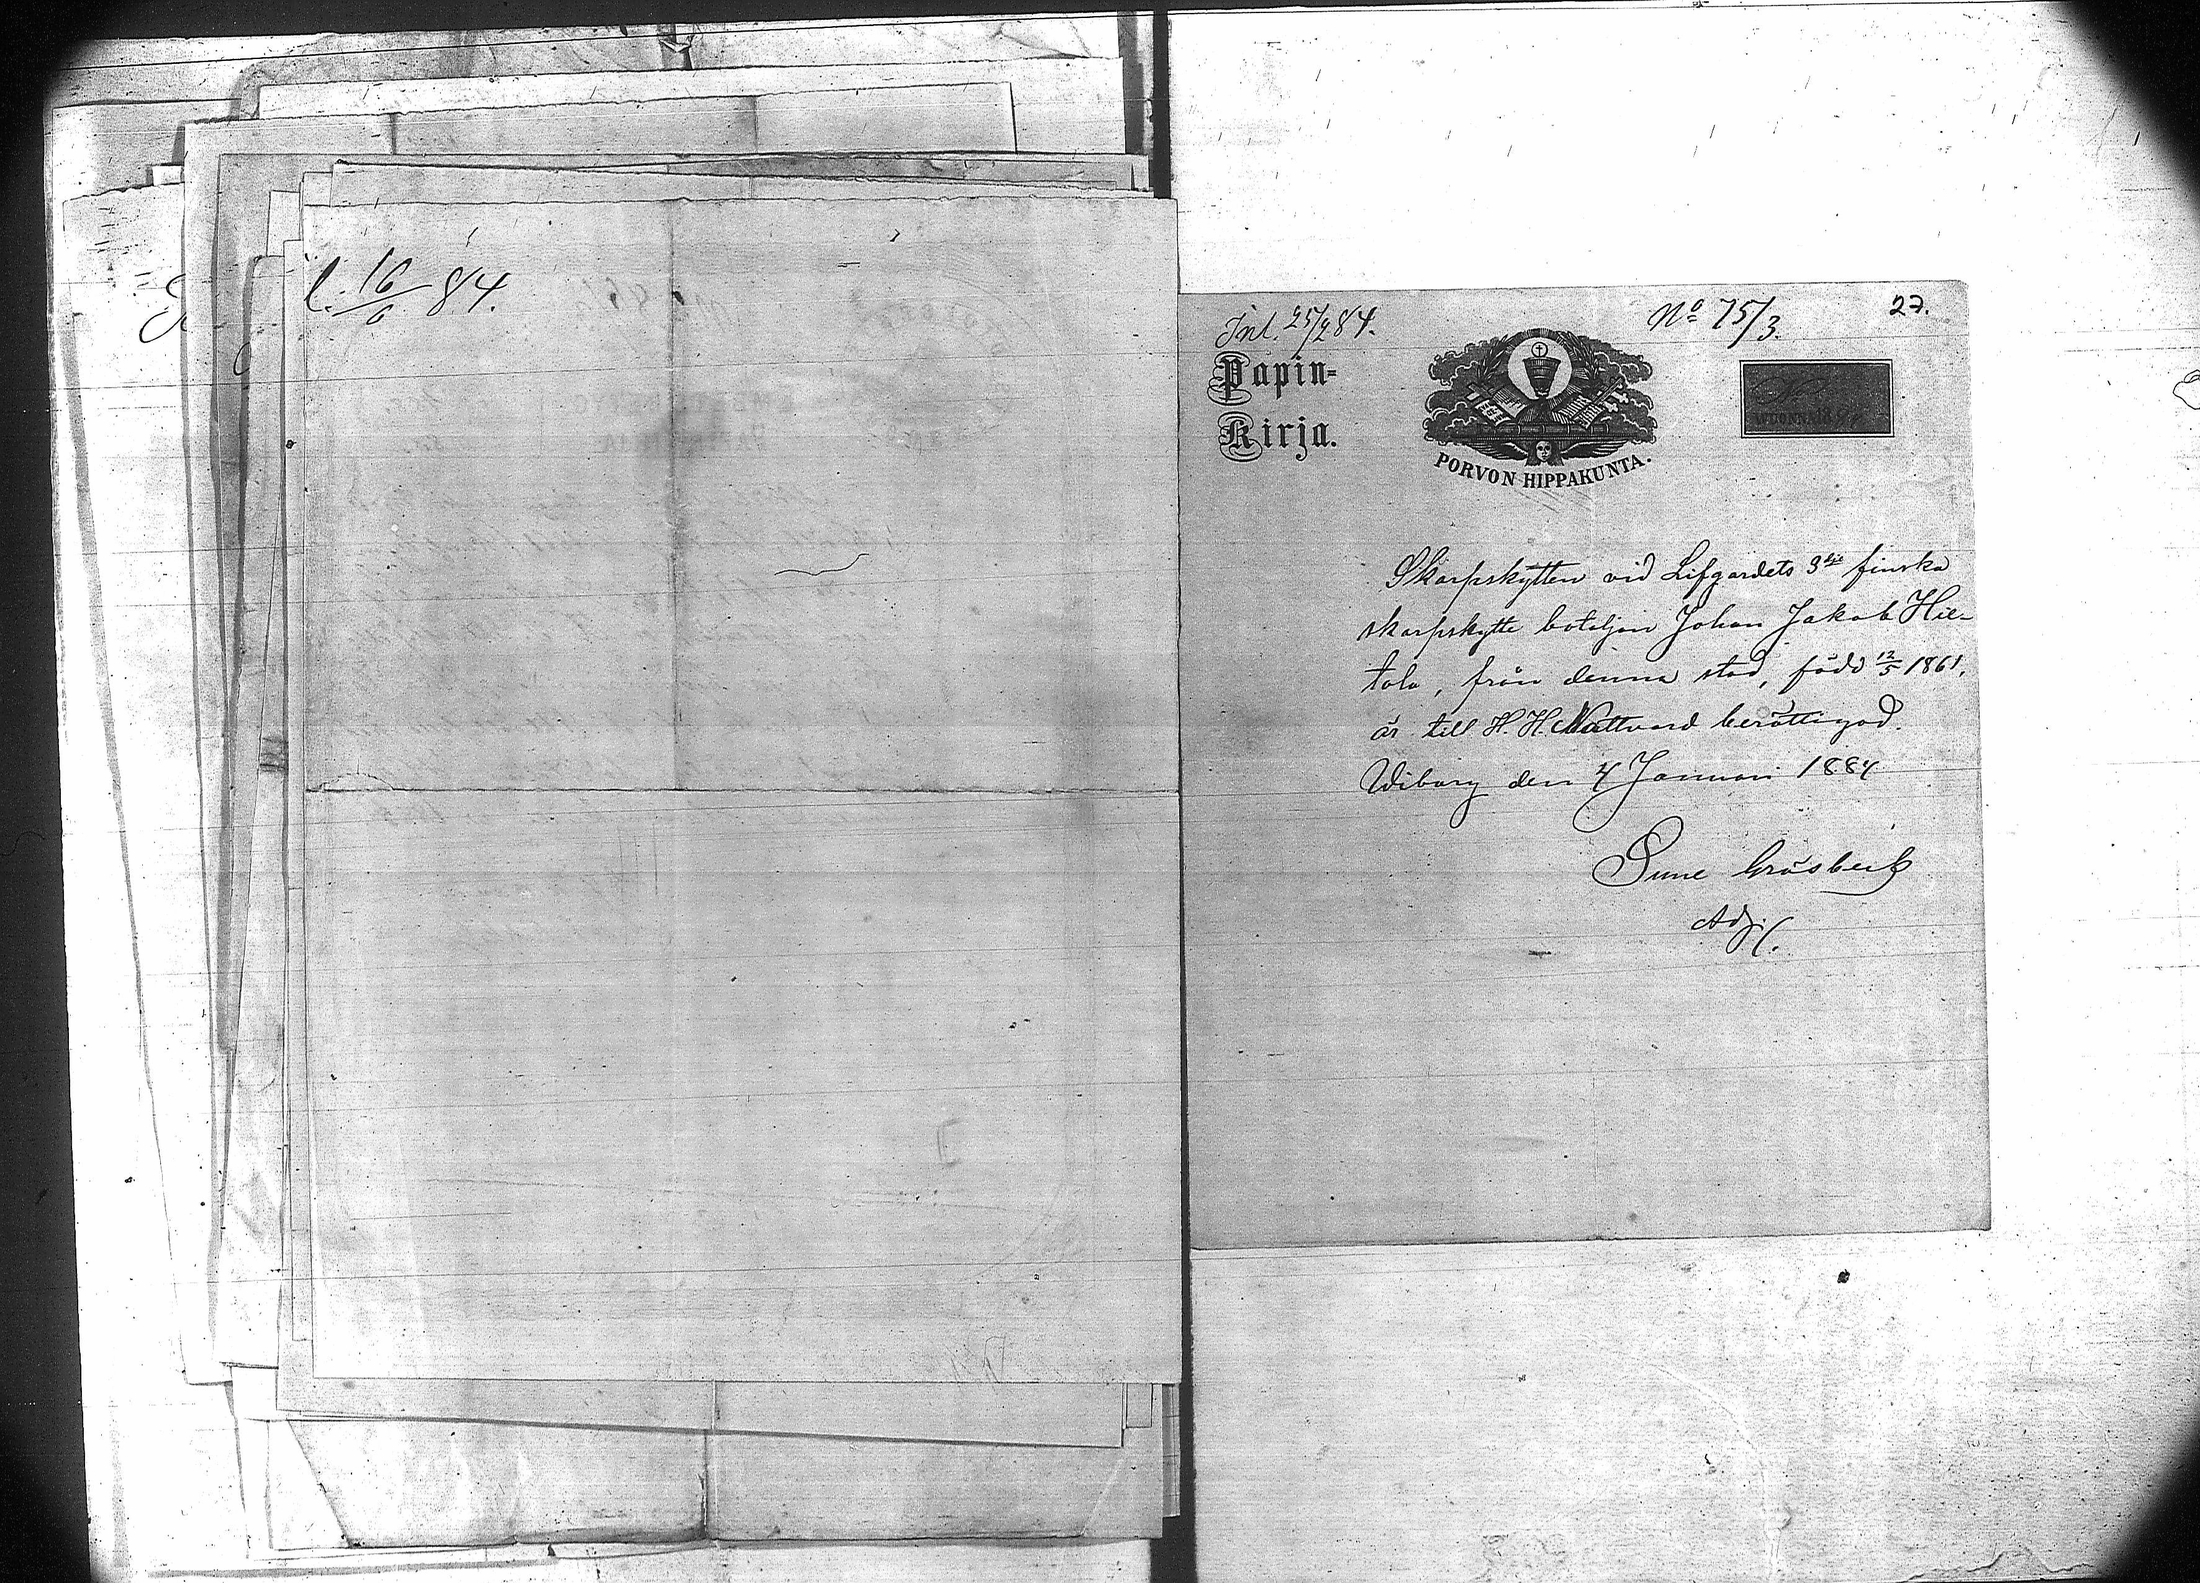 l. 16/6 84.
Inl. 25/2 84.
No 75/3.
27.
Papin-
Kirja.
PORVON HIPPAKUNTA.
No
WUONNA 1884
Skarpskytten vid Lifgardets 3dje finska
skarpskytte bataljon Johan Jakob Hie-
tala, från denna stad, född 12/5 1861,
är till H. H. Nattvard berättigad.
Wiborg den 4 Januari 1884
Sune Gråsbeck
Adj.